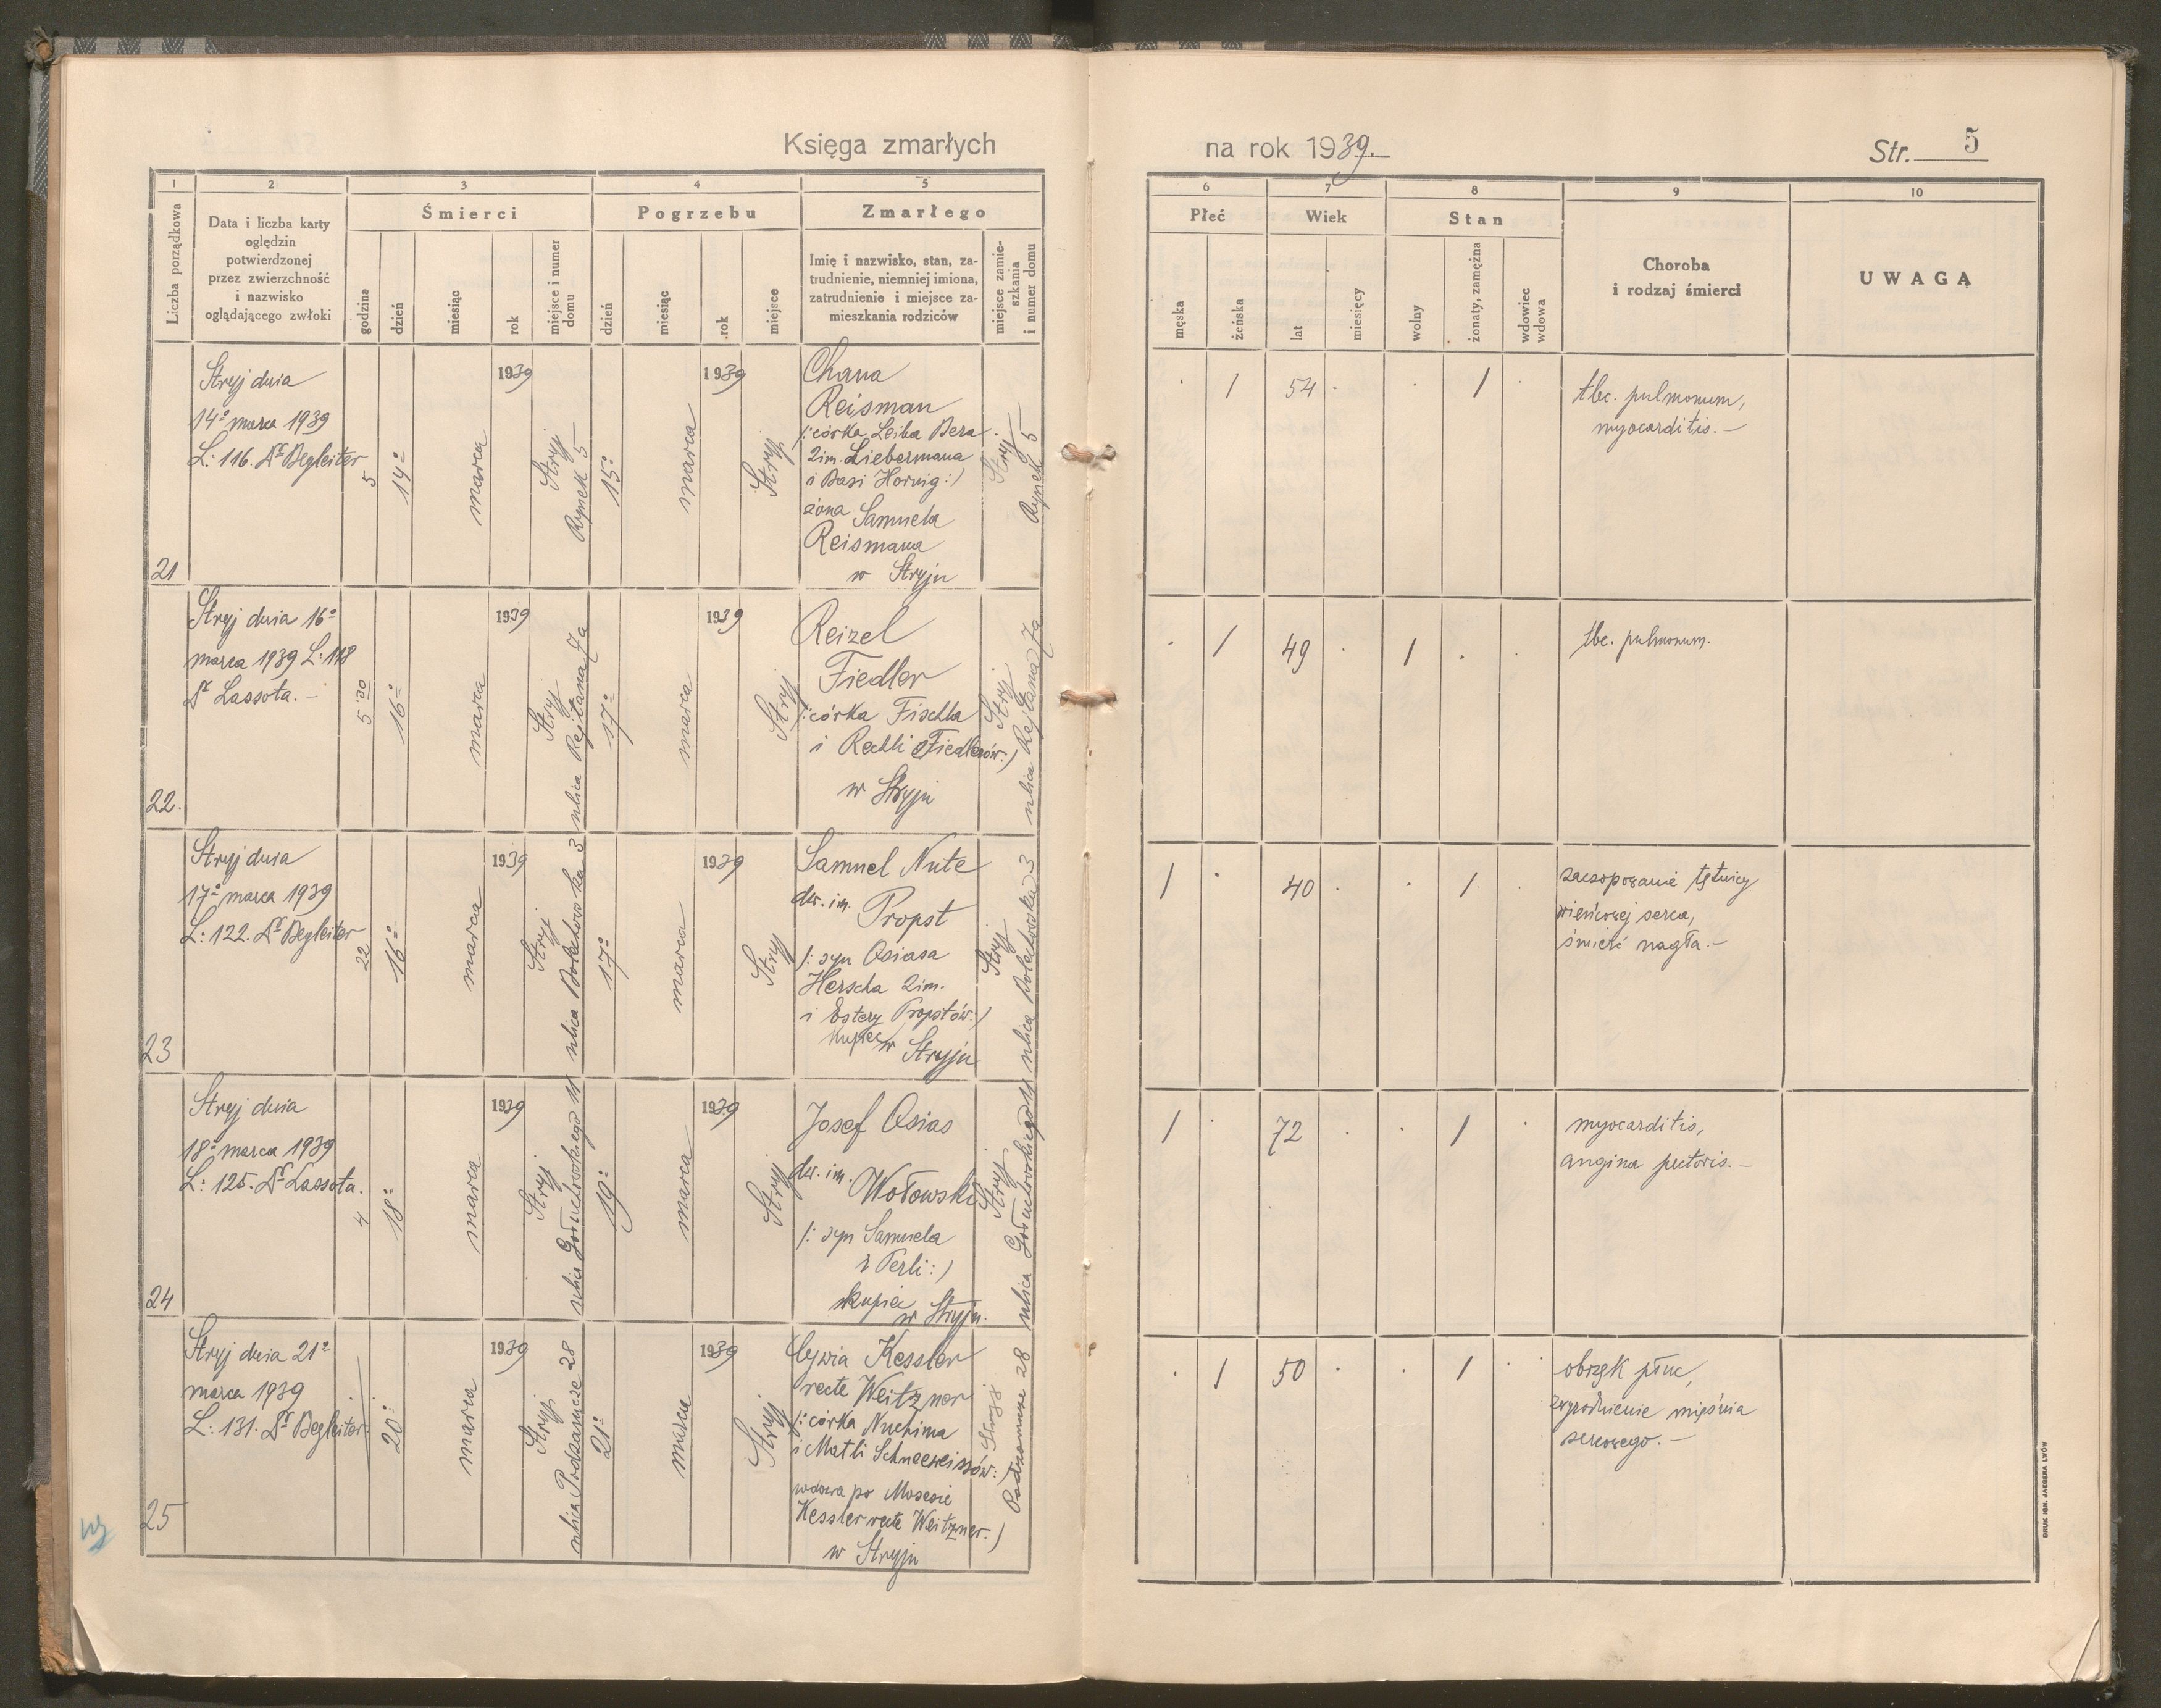 Księga zmarłych
na rok 1939.
Str. 5
1
2
3
4
5
6
7
8
9
10
Liczba porządkowa
Data i liczba karty
oględzin
potwierdzonej
przez zwierzchność
i nazwisko
oglądającego zwłoki
Śmierci
godzina
dzień
miesiąc
rok
miejsce i numer
domu
Pogrzebu
dzień
miesiąc
rok
miejsce
Zmarłego
Imię i nazwisko, stan, za-
trudnienie, niemniej imiona,
zatrudnienie i miejsce za-
mieszkania rodziców
miejsce zamie-
szkania
i numer domu
Płeć
męska
żeńska
Wiek
lat
miesięcy
Stan
wolny
żonaty, zamężna
wdowiec
wdowa
Choroba
i rodzaj śmierci
UWAGA
21
Stryj dnia
14º marca 1939
L: 116. Dr Begleiter
5
14º
marca
1939
Stryj
Rynek 5
15º
marca
1939
Stryj
Chana
Reisman
/: córka Leiba Bera
2im. Liebermana
i Basi Hornig :/
żona Samuela
Reismana
w Stryju
Stryj
Rynek 5
· 1 54 · · 1 ·
tbc. pulmonum,
myocarditis. –
22.
Stryj dnia 16º
marca 1939 L: 118
Dr Lassota. –
5:30
16º
marca
1939
Stryj
ulica Rejtana 7a
17º
marca
1939
Stryj
Reizel
Fiedler
/: córka Fischla
i Rechli Fiedlerów :/
w Stryju
Stryj
ulica Rejtana 7a
· 1 49 · 1 · ·
tbc. pulmonum.
23
Stryj dnia
17º marca 1939
L: 122. Dr Begleiter
22
16º
marca
1939
Stryj
ulica Bolechowska 3
17º
marca
1939
Stryj
Samuel Nute
dw. im.
Propst
/: syn Osiasa
Herscha 2im.
i Estery Propstów :/
kupiec
w Stryju
Stryj
ulica Bolechowska 3
1 · 40 · · 1 ·
zaczopowanie tętnicy
wieńcowej serca,
śmierć nagła. –
24
Stryj dnia
18º marca 1939
L: 125. Dr Lassota.
4
18º
marca
1939
Stryj
ulica Gołuchowskiego 11
19º
marca
1939
Stryj
Josef Osias
dw. im.
Wołowski
/: syn Samuela
i Perli :/
kupiec
w Stryju.
Stryj
ulica Gołuchowskiego 11
1 · 72 · · 1 ·
myocarditis,
angina pectoris. –
25
Stryj dnia 21º
marca 1939
L: 131. Dr Begleiter
20º
marca
1939
Stryj
ulica Podzamcze 28
21º
marca
1939
Stryj
Cywia Kessler
recte Weitzner
/: córka Nuchima
i Matli Schneeweissów :/
wdowa po Mosesie
Kessler recte Weitzner. /
w Stryju
Stryj
Podzamcze 28
· 1 50 · · 1 ·
obrzęk płuc,
zwyrodnienie mięśnia
sercowego. –
DRUK IGN. JAEGERA LWÓW